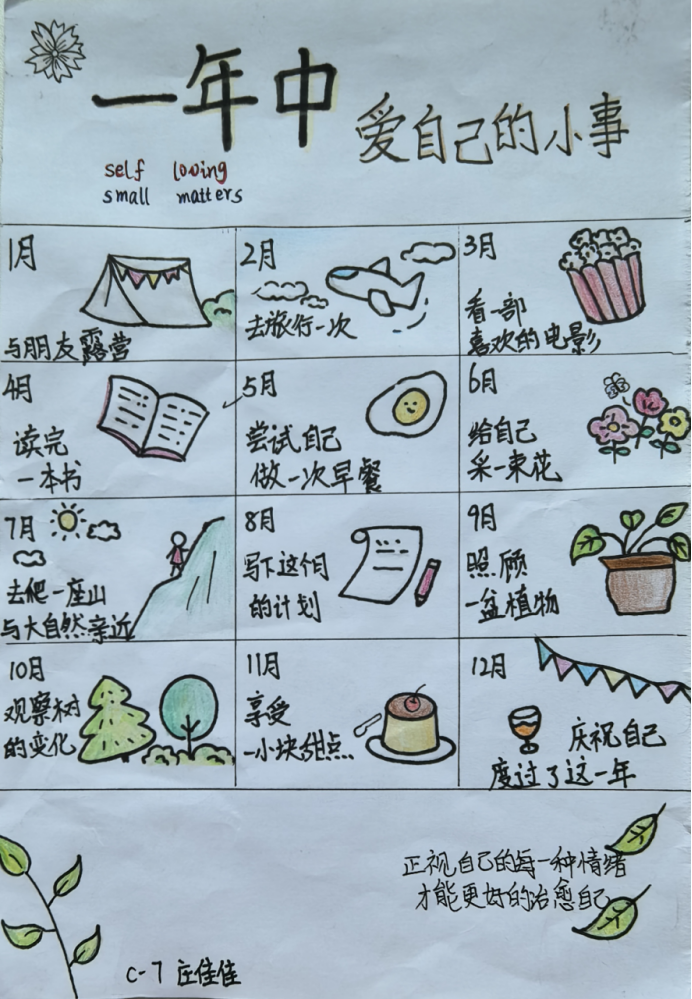 一年中
爱自己的小事
self loving
small matters
1月
与朋友露营
2月
去旅行一次
3月
看一部
喜欢的电影
4月
读完
一本书
5月
尝试自己
做一次早餐
6月
给自己
采一束花
7月
去爬一座山
与大自然亲近
8月
写下这个月
的计划
9月
照顾
一盆植物
10月
观察树
的变化
11月
享受
一小块甜点
12月
庆祝自己
度过了这一年
正视自己的每一种情绪
才能更好的治愈自己
C-7 庄佳佳